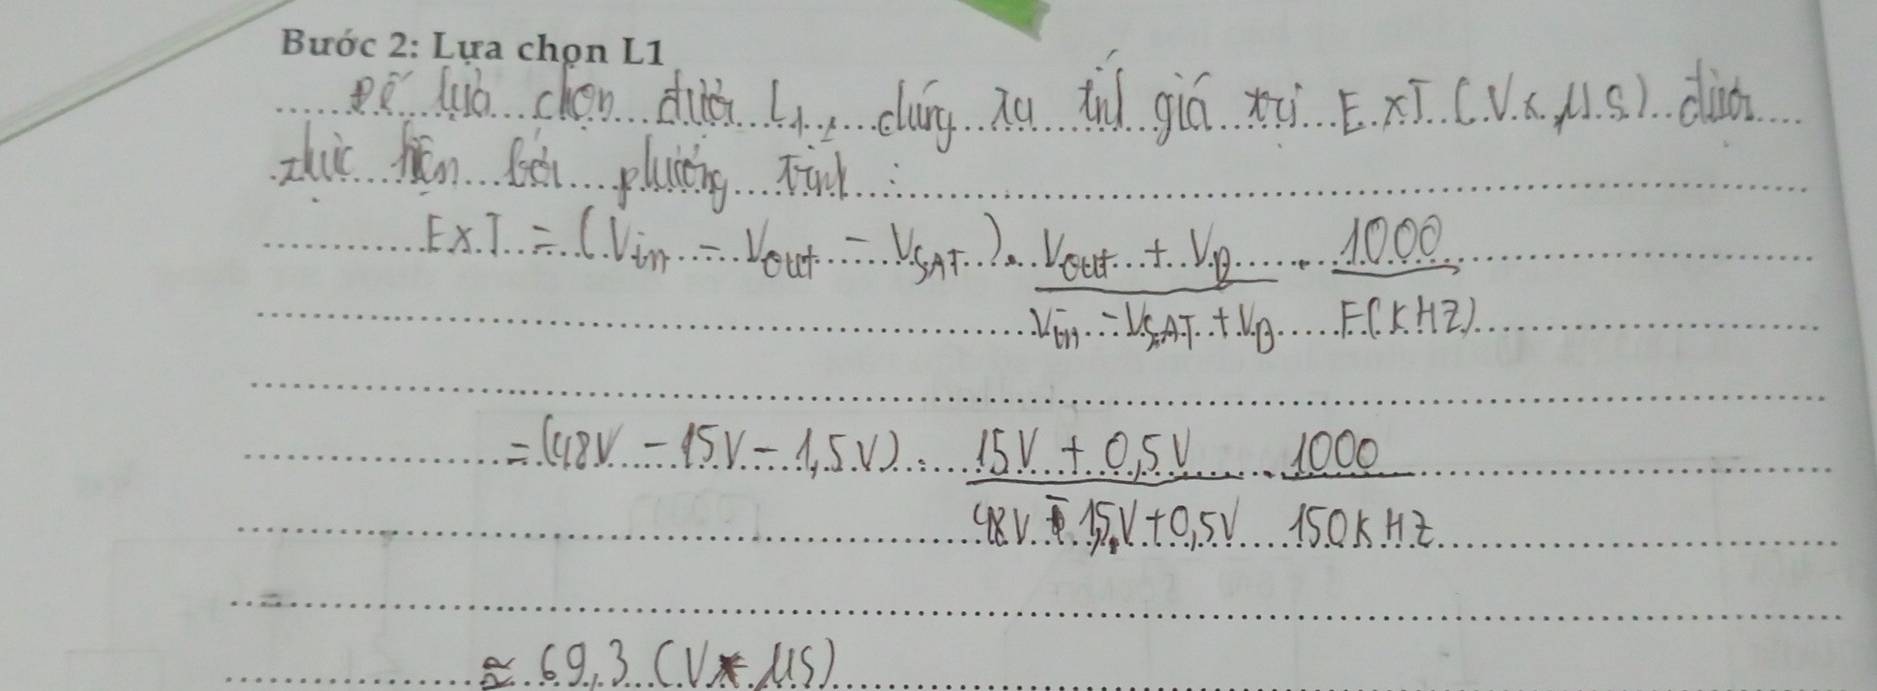 Bước 2: Lựa chọn L1
Để lựa chọn được L1, chúng ta tính giá trị E x T (V x μs) được
thực hiện bởi phương trình :
E x T = (Vin - Vout - VSAT) . (Vout + VD)/(Vin - VSAT + VD) . 1000/F(KHZ)
= (48V - 15V - 1,5V) . (15V + 0,5V)/(48V - 1,5V + 0,5V) . 1000/150KHZ
=
≈ 69,3 (V * μs)